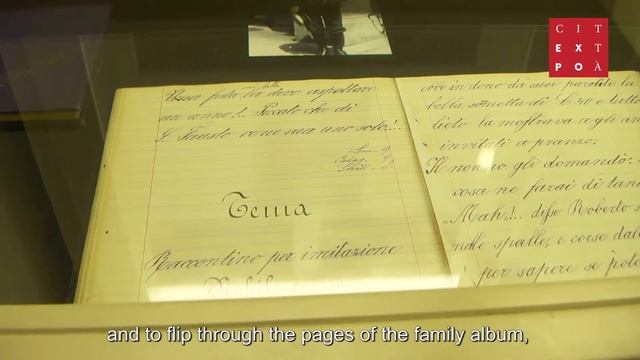 CIT
EXT
POÀ
festa
deve aspettare
un anno!.. Peccato che di
S. Fausto ve ne sia uno solo!...
Tema
Raccontino per imitazione
ebbe in dono dai suoi parenti la
bella sometta di £ 30 e tutto
lieto la mostrava agli
invitati a pranzo.
Il nonno gli domandò:
cosa ne farai di
Mah!.. disse Roberto
spalle, e corse
per sapere se
and to flip through the pages of the family album,